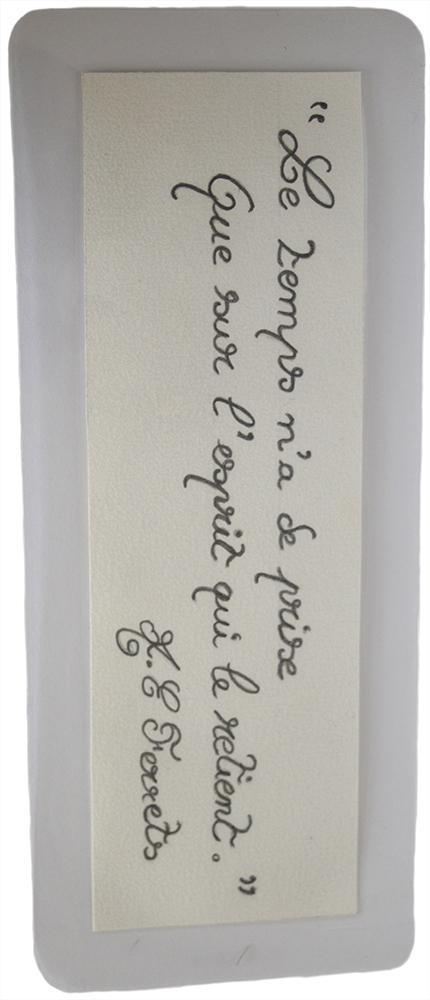 "Le temps n'a de prise
Que sur l'esprit qui le retient."
A. E Ferrets